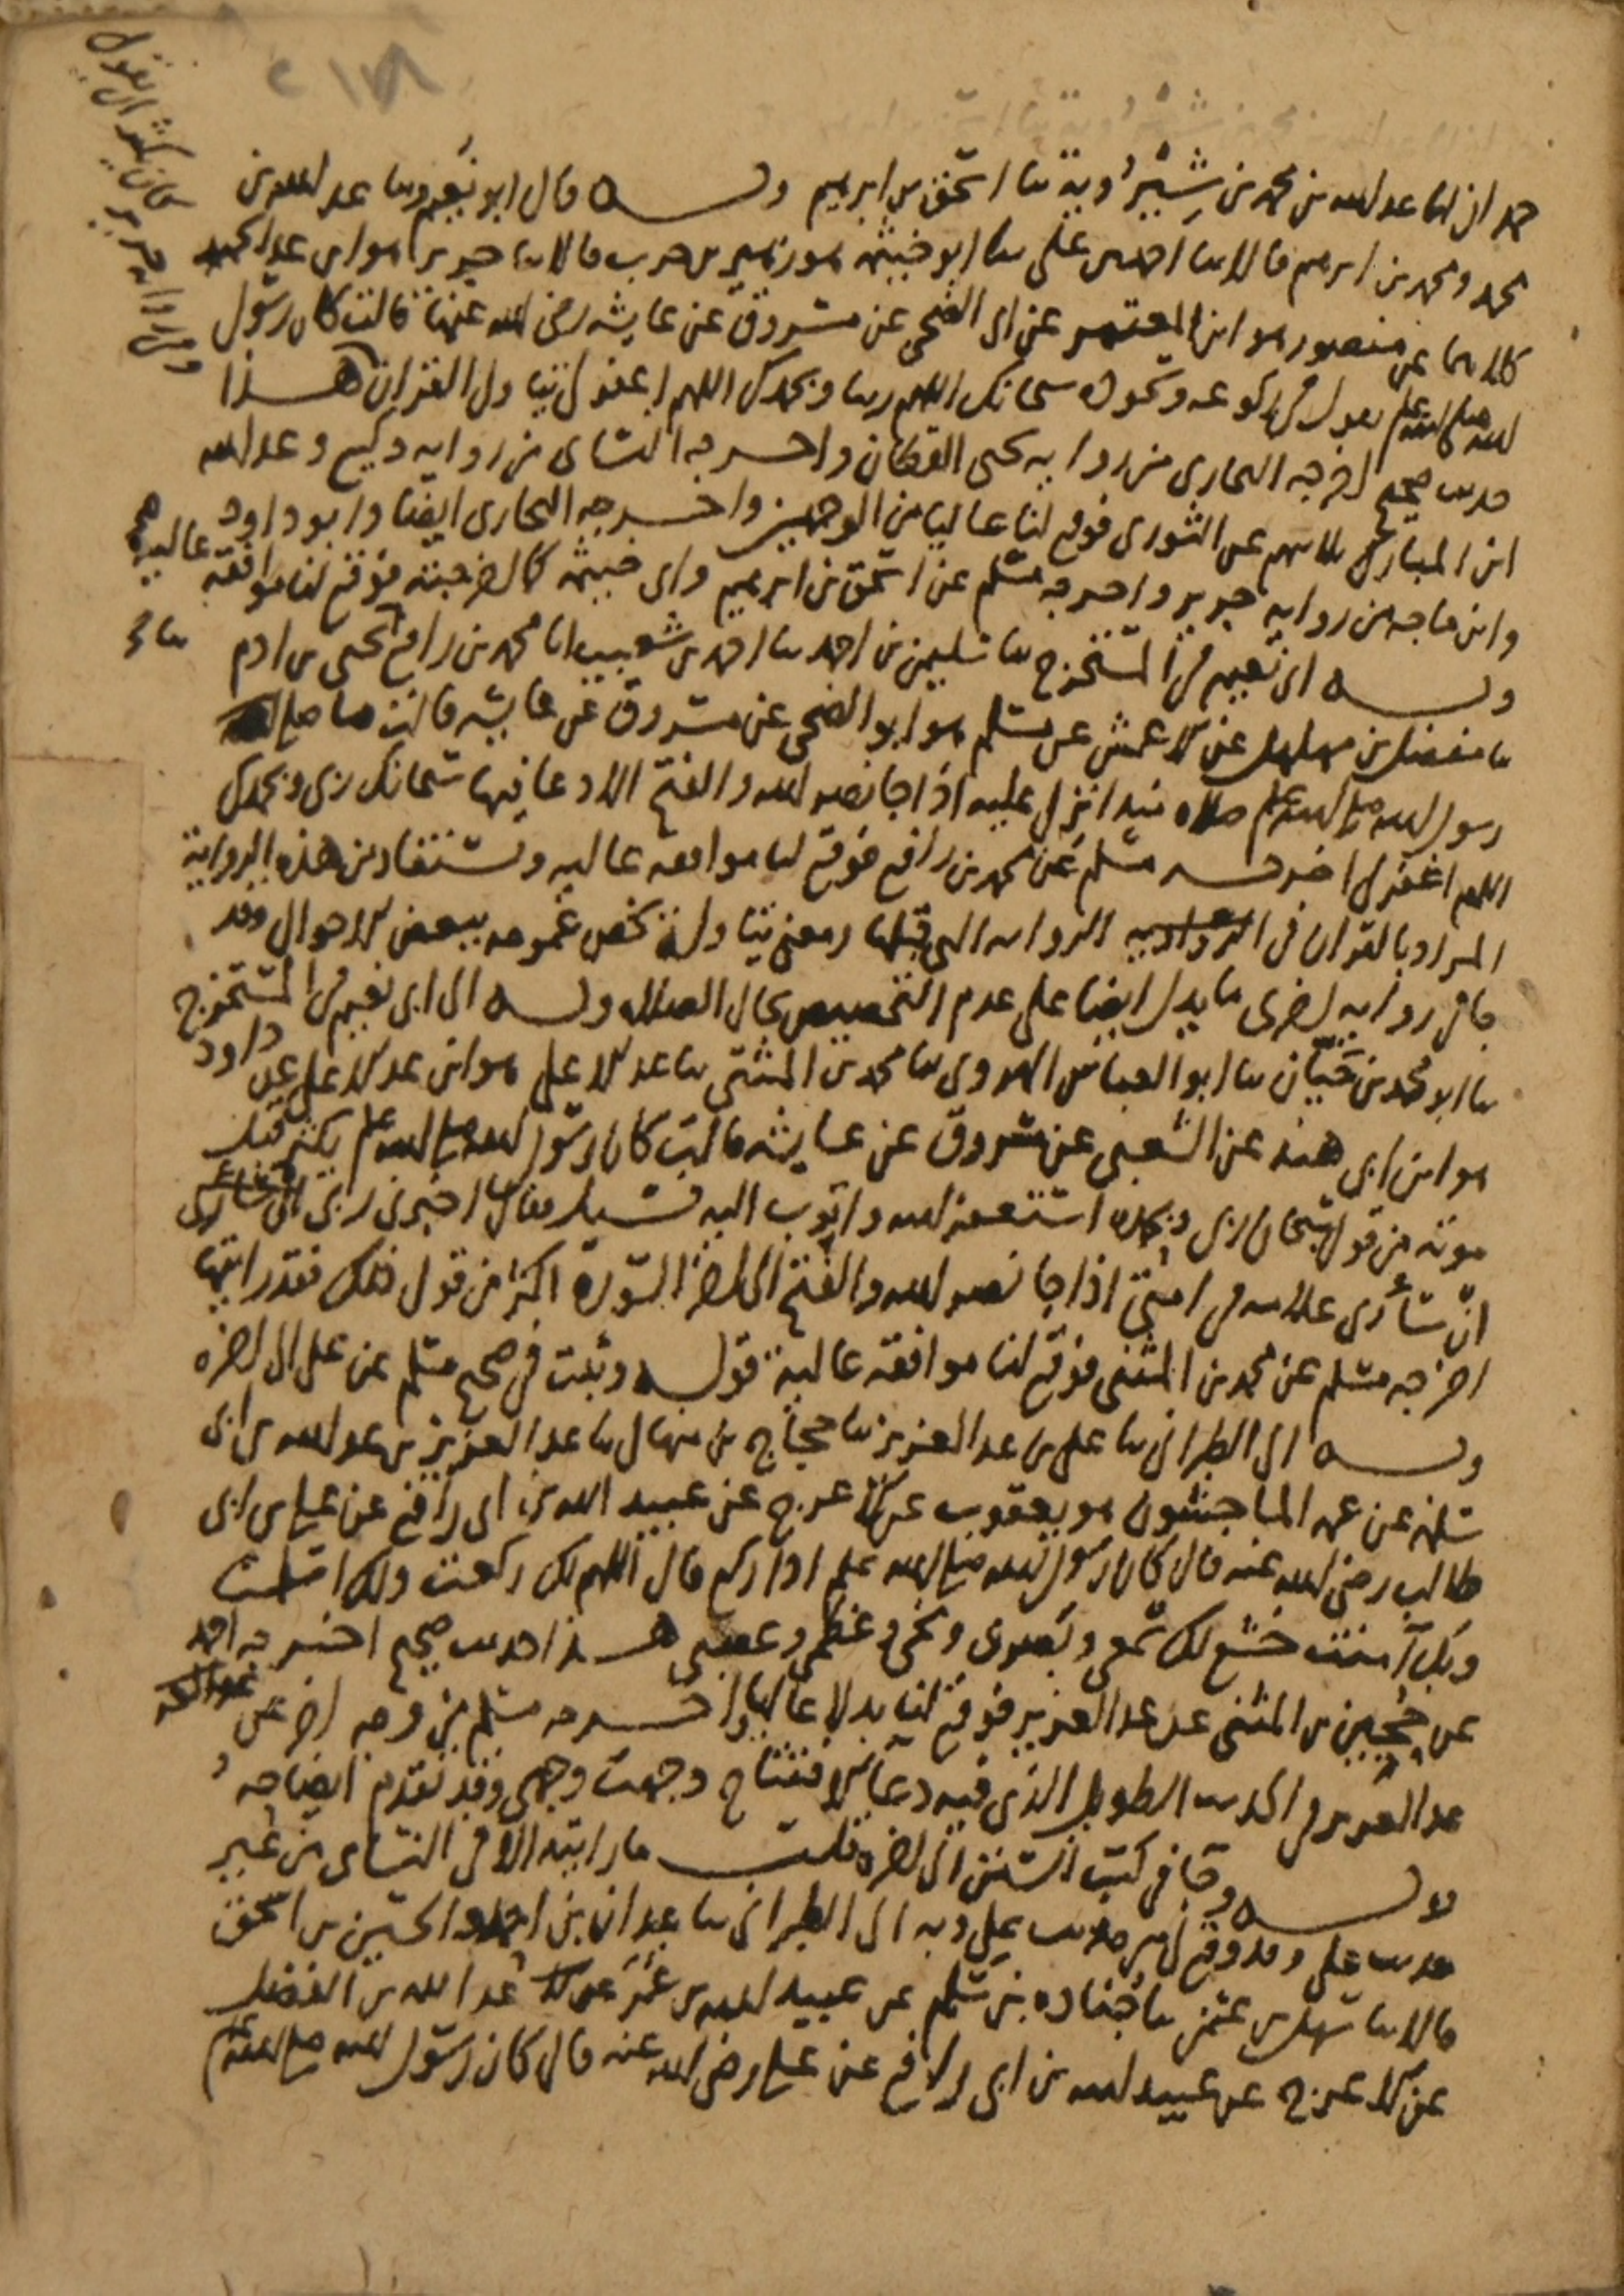 حمدان انا عبد الله بن محمد بن شيرويه ثنا اسحق بن ابرهيم وبه قال ابو نعيم وثنا عبد الله بن
محمد ومحمد بن ابرهيم قالا ثنا احمد بن علي ثنا ابو خيثمة هو زهير بن حرب قالا ثنا جرير هو ابن عبد الحميد
كلاهما عن منصور هو ابن المعتمر عن ابي الضحى عن مسروق عن عايشة رضي الله عنها قالت كان رسول
الله صلى الله عليه وسلم يقول في ركوعه وسجوده سبحانك اللهم ربنا وبحمدك اللهم اغفر لي يتاول القران هذا
حديث صحيح اخرجه البخاري من رواية يحيى القطان واخرجه النساي من رواية وكيع وعبد الله
ابن المبارك ثلاثتهم عن الثوري فوقع لنا عاليا من الوجهين واخرجه البخاري ايضا وابو داود
وابن ماجه من رواية جرير واخرجه مسلم عن اسحق بن ابرهيم وابي خيثمة كما اخرجته فوقع لنا موافقة عالية
وبه الى ابي نعيم في المستخرج ثنا سليمن بن احمد ثنا احمد بن شعيب انا محمد بن رافع ثنا يحيى بن ادم
ثنا مفضل بن مهلهل عن الاعمش عن مسلم هو ابو الضحى عن مسروق عن عايشة قالت ما صلى
رسول الله صلى الله عليه وسلم صلاة منذ انزل عليه اذا جا نصر الله والفتح الا دعا فيها سبحانك ربي وبحمدك
اللهم اغفر لي اخرجه مسلم عن محمد بن رافع فوقع لنا موافقة عالية ويستفاد من هذه الرواية
المراد بالقران في الرواية التي قبلها ومعنى يتاوله يخص عمومه ببعض الاحوال وقد
جا في رواية اخرى ما يدل ايضا على عدم التخصيص بحال الصلاة وبه الى ابي نعيم في المستخرج
ثنا ابو محمد بن حيان ثنا ابو العباس الهروي ثنا محمد بن المثنى ثنا عبد الاعلى هو ابن عبد الاعلى عن داود
هو ابن ابي هند عن الشعبي عن مسروق عن عايشة قالت كان رسول الله صلى الله عليه وسلم يكثر قبل
موته من قول سبحان ربي وبحمده استغفر الله واتوب اليه فسيل فقال اخبرني ربي
اني سأرى علامة في امتي اذا جا نصر الله والفتح الى اخر السورة اكثر من قول ذلك فقد رايتها
اخرجه مسلم عن محمد بن المثنى فوقع لنا موافقة عالية قوله وثبت في صحيح مسلم عن علي الى اخره
وبه الى الطبراني ثنا علي بن عبد العزيز ثنا حجاج بن منهال ثنا عبد العزيز بن عبد الله بن ابي
سلمة عن عمه الماجشون هو يعقوب عن الاعرج عن عبيد الله بن ابي رافع عن علي بن ابي
طالب رضي الله عنه قال كان رسول الله صلى الله عليه وسلم اذا ركع قال اللهم لك ركعت ولك اسلمت
وبك آمنت خشع لك سمعي وبصري ومخي وعظمي وعصبي هذا حديث صحيح اخرجه احمد
عن حجين بن المثنى عن عبد العزيز فوقع لنا بدلا عاليا واخرجه مسلم من وجه اخر عن
عبد العزيز في الحديث الطويل الذي فيه دعا الافتتاح وجهت وجهي وقد تقدم ايضاحه
قوله وجا في كتب السنن الى اخره قلت ما رايته الا في النساي من غير
حديث علي وقد وقع لي من حديث علي وبه الى الطبراني ثنا عبدان بن احمد والحسين بن اسحق
قالا ثنا سهل بن عثمن ثنا جنادة بن سلم عن عبيد الله بن عمر عن عبد الله بن الفضل
عن الاعرج عن عبيد الله بن ابي رافع عن علي رضي الله عنه قال كان رسول الله صلى الله عليه وسلم